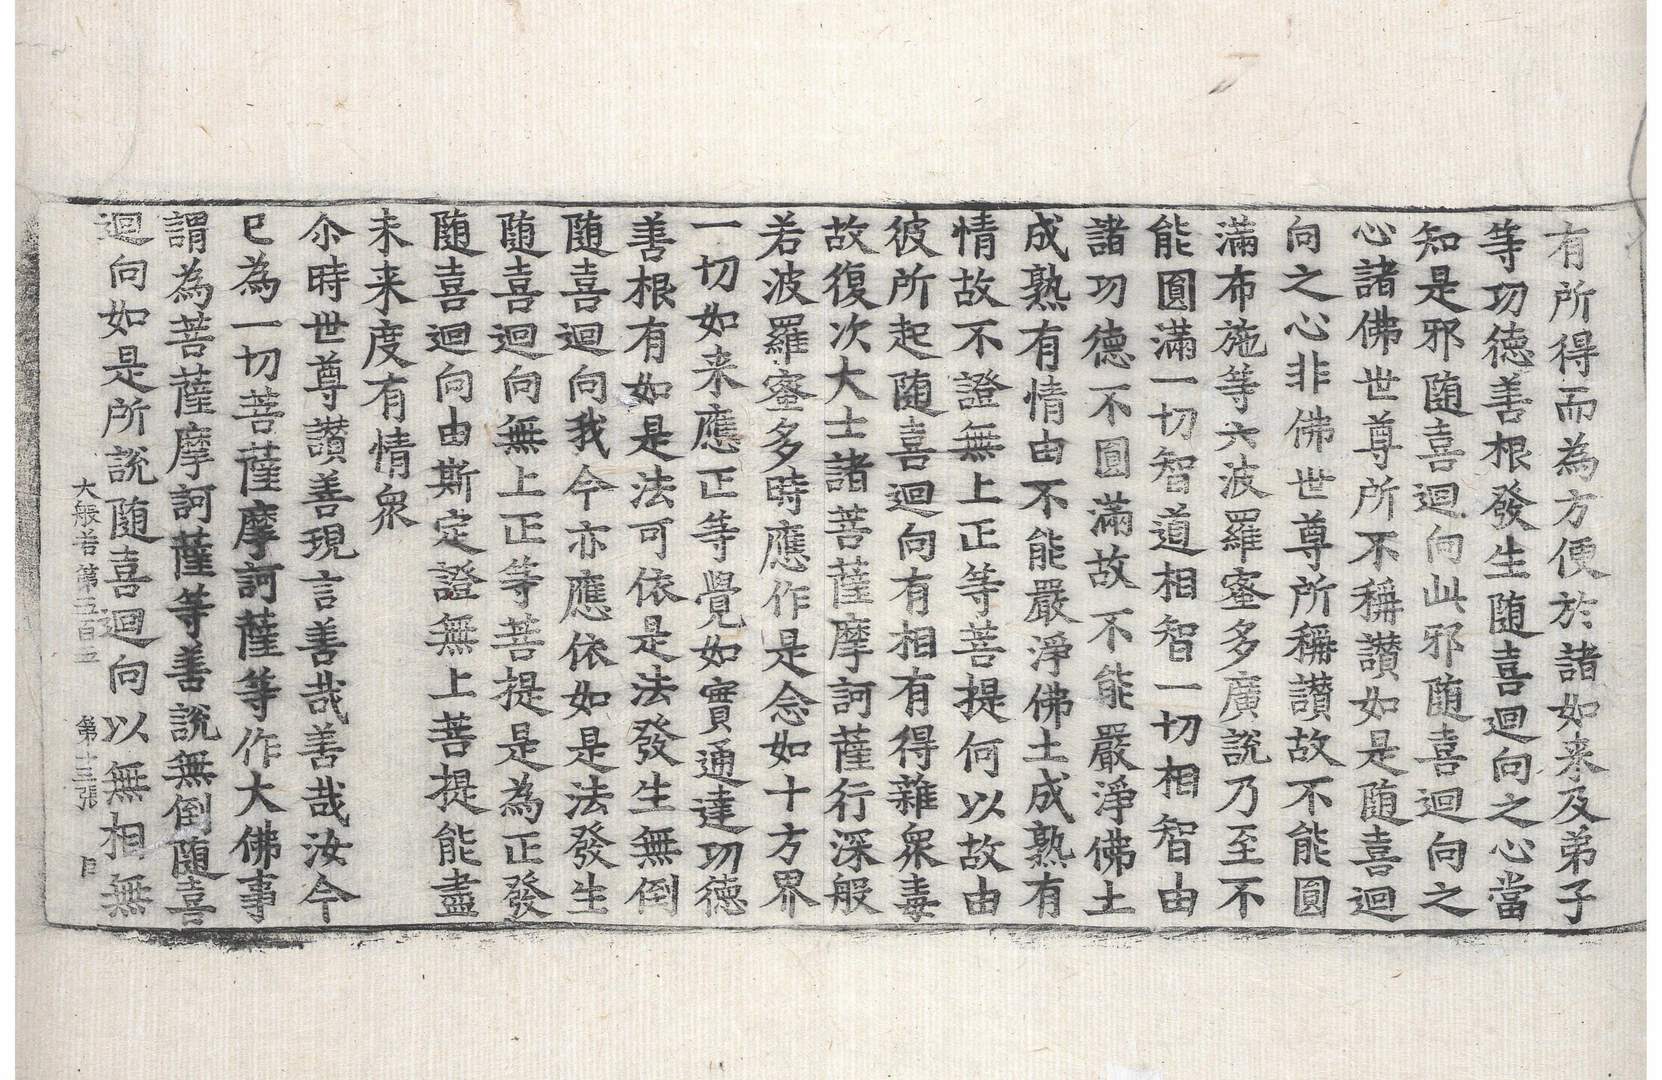 有所得而為方便於諸如来及弟子
等功德善根發生随喜迴向之心當
知是邪随喜迴向此邪随喜迴向之
心諸佛世尊所不稱讃如是随喜迴
向之心非佛世尊所稱讃故不能圓
滿布施等六波羅蜜多廣說乃至不
能圓滿一切智道相智一切相智由
諸功德不圓滿故不能嚴淨佛土
成熟有情由不能嚴淨佛土成熟有
情故不證無上正等菩提何以故由
彼所起随喜迴向有相有得雜衆毒
故復次大士諸菩薩摩訶薩行深般
若波羅蜜多時應作是念如十方界
一切如来應正等覺如實通達功德
善根有如是法可依是法發生無倒
随喜迴向我今亦應依如是法發生
随喜迴向無上正等菩提是為正發
随喜迴向由斯定證無上菩提能盡
未来度有情衆
尒時世尊讃善現言善哉善哉汝今
已為一切菩薩摩訶薩等作大佛事
謂為菩薩摩訶薩等善說無倒随喜
迴向如是所說随喜迴向以無相無
大般若第五百五 第十三張